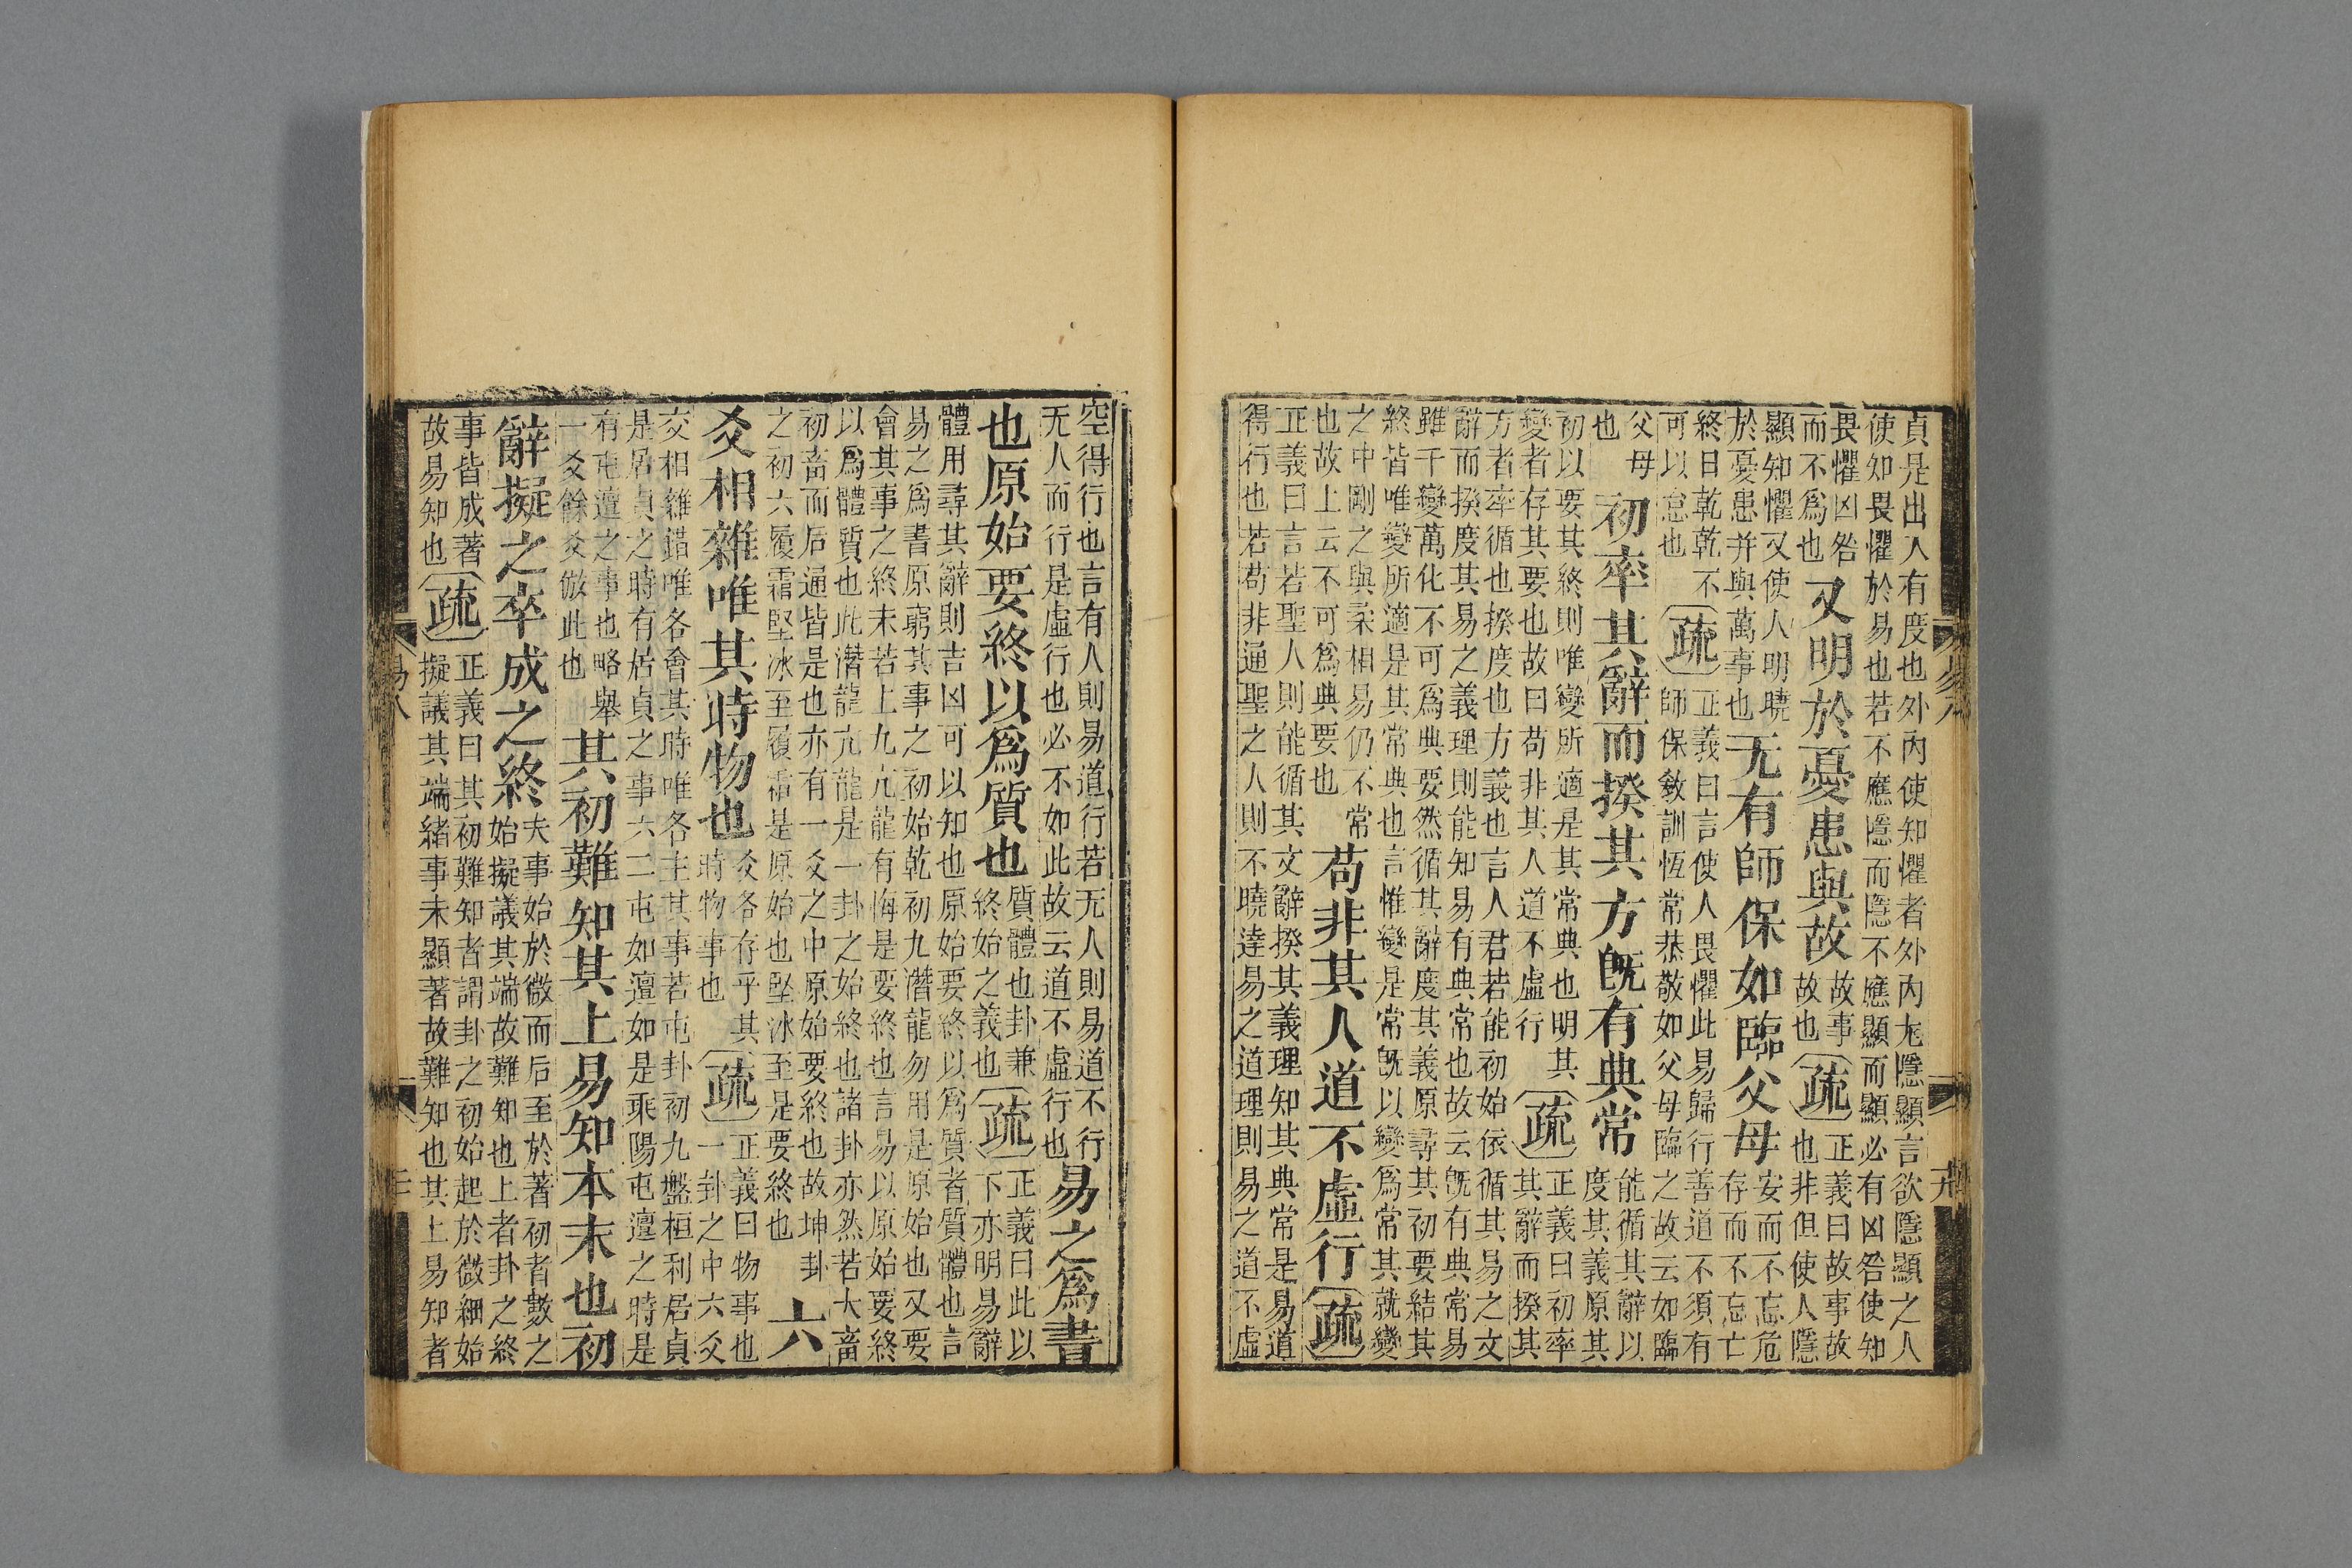 貞是出入有度也外內使知懼者外內尨隱顯言欲隱顯之人
使知畏懼於易也若不應隱而隱不應顯而顯必有凶咎使知
畏懼凶咎
而不爲也
又明於憂患與故
故事
故也
疏
正義曰故事故
也非但使人隱
顯知懼又使人明曉
於憂患并與萬事也
无有師保如臨父母
安而不忘危
存而不忘亡
終日乾乾不
可以怠也
疏
正義曰言使人畏懼此易歸行善道不須有
師保敎訓恆常恭敬如父母臨之故云如臨
父母
也
初率其辭而揆其方旣有典常
能循其辭以
度其義原其
初以要其終則唯變所適是其常典也明其
變者存其要也故曰苟非其人道不虛行
疏
正義曰初率
其辭而揆其
方者率循也揆度也方義也言人君若能初始依循其易之文
辭而揆度其易之義理則能知易有典常也故云旣有典常易
雖千變萬化不可爲典要然循其辭度其義原尋其初要結其
終皆唯變所適是其常典也言惟變是常旣以變爲常其就變
之中剛之與柔相易仍不常
也故上云不可爲典要也
苟非其人道不虛行
疏
正義曰言若聖人則能循其文辭揆其義理知其典常是易道
得行也若苟非通聖之人則不曉達易之道理則易之道不虛
空得行也言有人則易道行若无人則易道不行
无人而行是虛行也必不如此故云道不虛行也
易之爲書
也原始要終以爲質也
質體也卦兼
終始之義也
疏
正義曰此以
下亦明易辭
體用尋其辭則吉凶可以知也原始要終以爲質者質體也言
易之爲書原窮其事之初始乾初九潛龍勿用是原始也又要
會其事之終末若上九亢龍有悔是要終也言易以原始要終
以爲體質也此潛龍亢龍是一卦之始終也諸卦亦然若大畜
初畜而后通皆是也亦有一爻之中原始要終也故坤卦
之初六履霜堅冰至履霜是原始也堅冰至是要終也
六
爻相雜唯其時物也
爻各存乎其
時物事也
疏
正義曰物事也
一卦之中六爻
交相雜錯唯各會其時唯各主其事若屯卦初九盤桓利居貞
是居貞之時有居貞之事六二屯如邅如是乘陽屯邅之時是
有屯邅之事也略舉
一爻餘爻倣此也
其初難知其上易知本末也初
辭擬之卒成之終
夫事始於微而后至於著初者數之
始擬議其端故難知也上者卦之終
事皆成著
故易知也
疏
正義曰其初難知者謂卦之初始起於微細始
擬議其端緒事未顯著故難知也其上易知者
易八